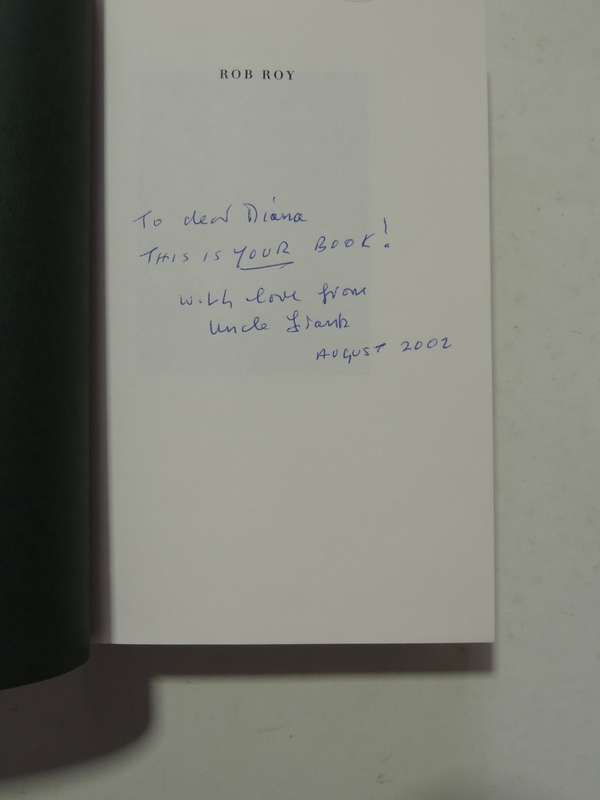 ROB ROY
To dear Diana
THIS IS YOUR BOOK!
with love from
Uncle Frank
AUGUST 2002